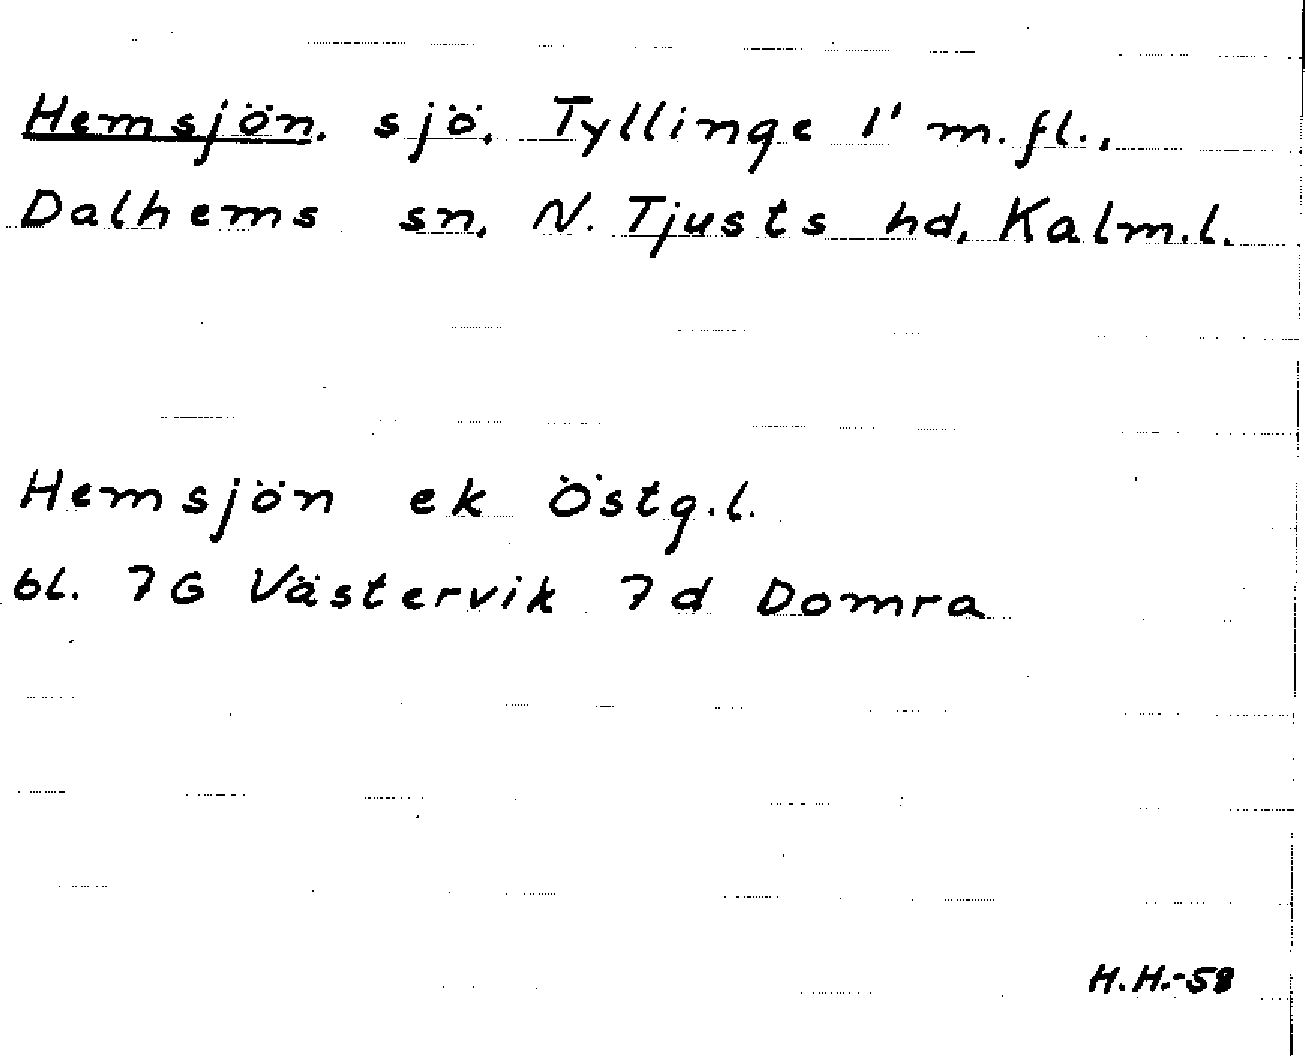 Hemsjön, sjö, Tyllinge 1' m.fl.,
Dalhems sn, N. Tjusts hd, Kalm.l.
Hemsjön ek Östg.l.
bl. 7G Västervik 7d Domra
H.H.-58